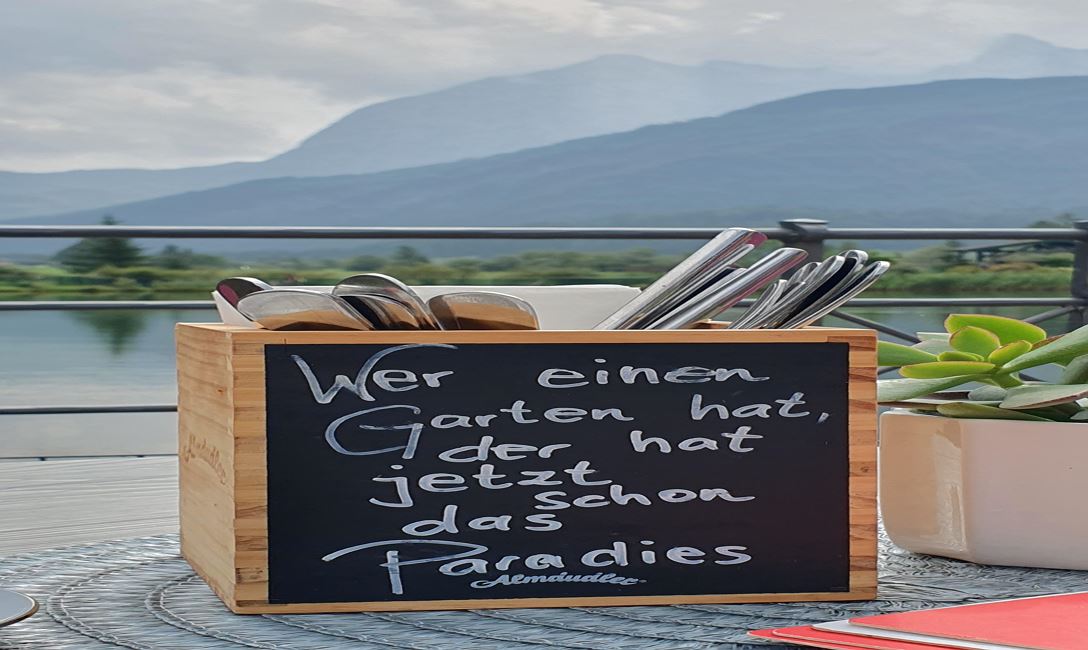 Wer einen
Garten hat,
der hat
jetzt
schon
das
Paradies
Almdudler
Almdudler